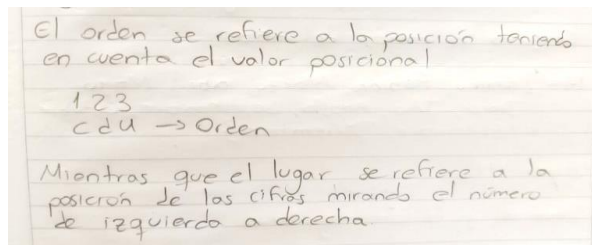 El orden se refiere a la posición teniendo
en cuenta el valor posicional
123
c d u → Orden
Mientras que el lugar se refiere a la
posición de las cifras mirando el número
de izquierda a derecha